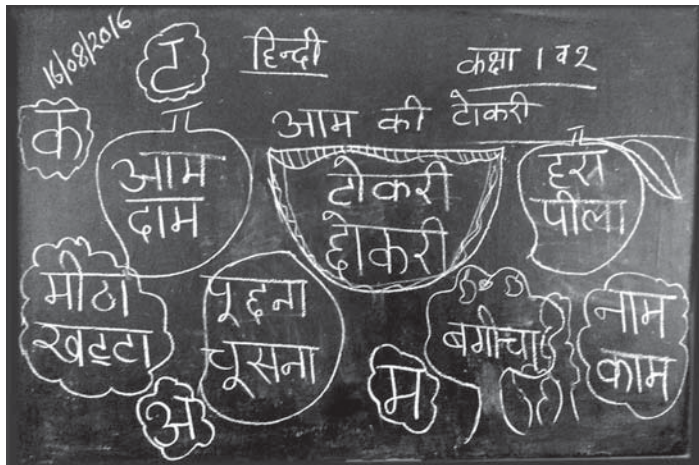 16/08/2016
ट
हिन्दी
कक्षा 1 व २
क
आम की टोकरी
आम
दाम
टोकरी
छोकरी
हरा
पीला
मीठा
खट्टा
पूछना
चूसना
बगीचा
नाम
काम
अ
म